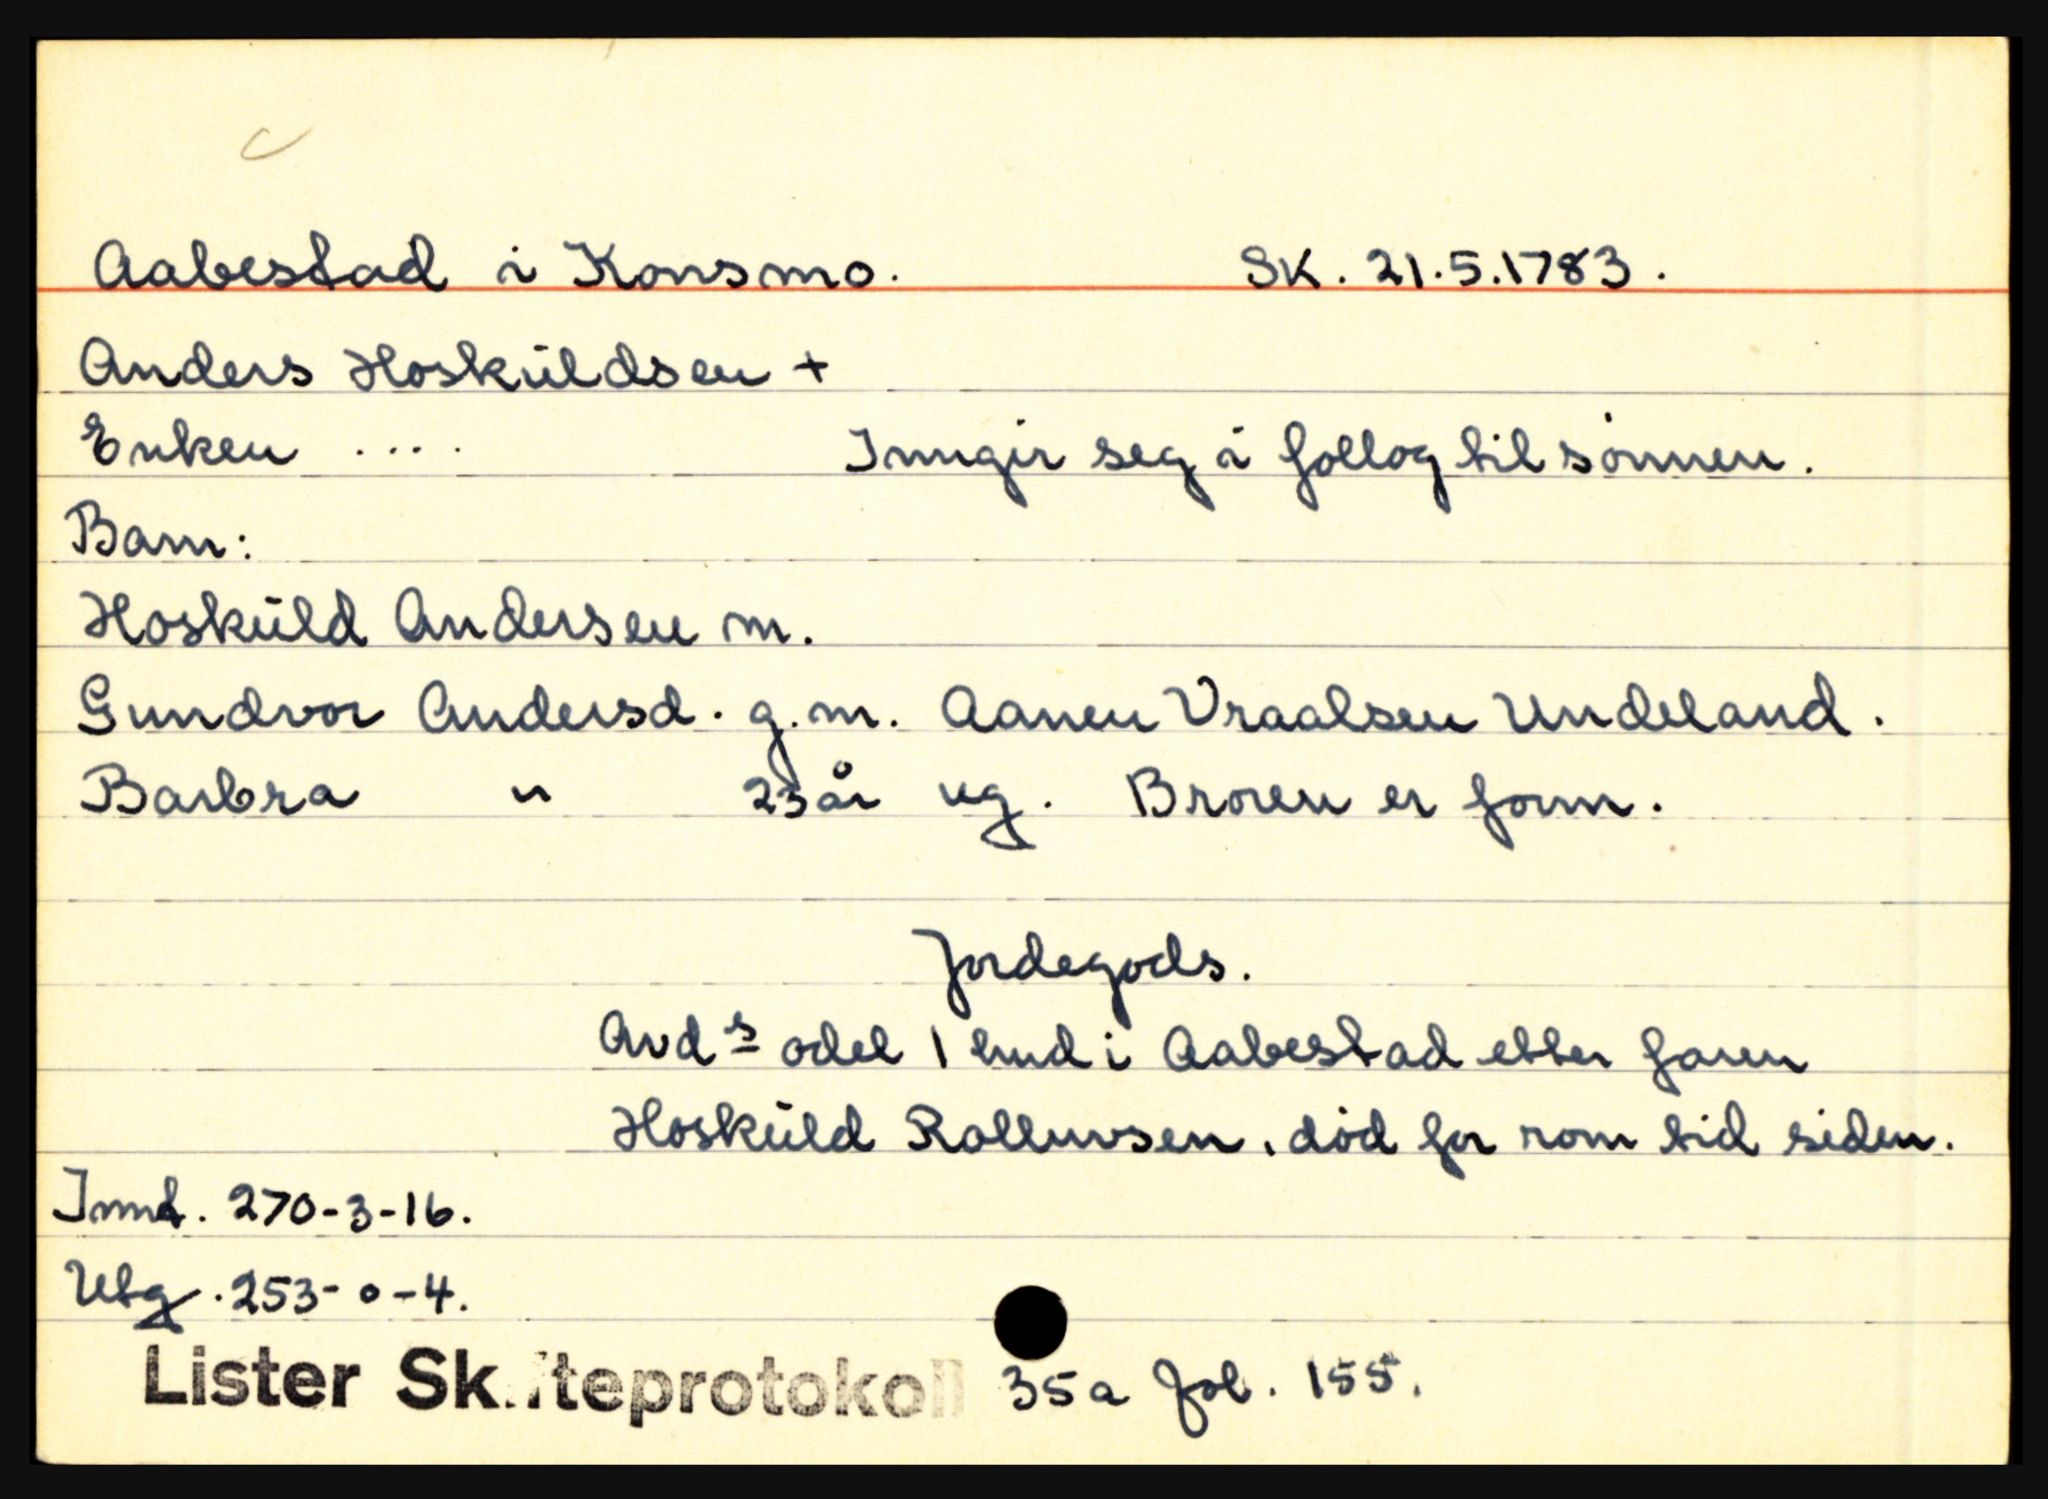 Aabestad i Konsmo. SK. 21.5.1783.
Anders Hosküldsen +
Enken .... Inngir seg i follog til sønnen.
Barn:
Hosküld Andersen m.
Gundvor Andersd. g.m. Aanen Vraalsen Undeland.
Barbra " 23 år ug. Broren er form.
Jordegods.
Avd s odel 1 hud i Aabestad etter faren
Hosküld Rolluvsen, død for rom tid siden.
Innt. 270-3-16.
Utg. 253-0-4.
Lister Skifteprotokoll 35a fol. 155.